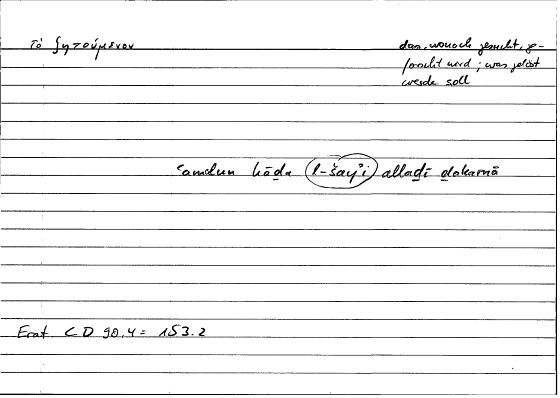 τὸ ζητούμενον
das, wonach gesucht, ge-
forscht wird; was gelöst
werde soll
ʿamdun hāḏa l-šayʾi allaḏī ḏakarnā
Erat. CD 90,4 = 153.2